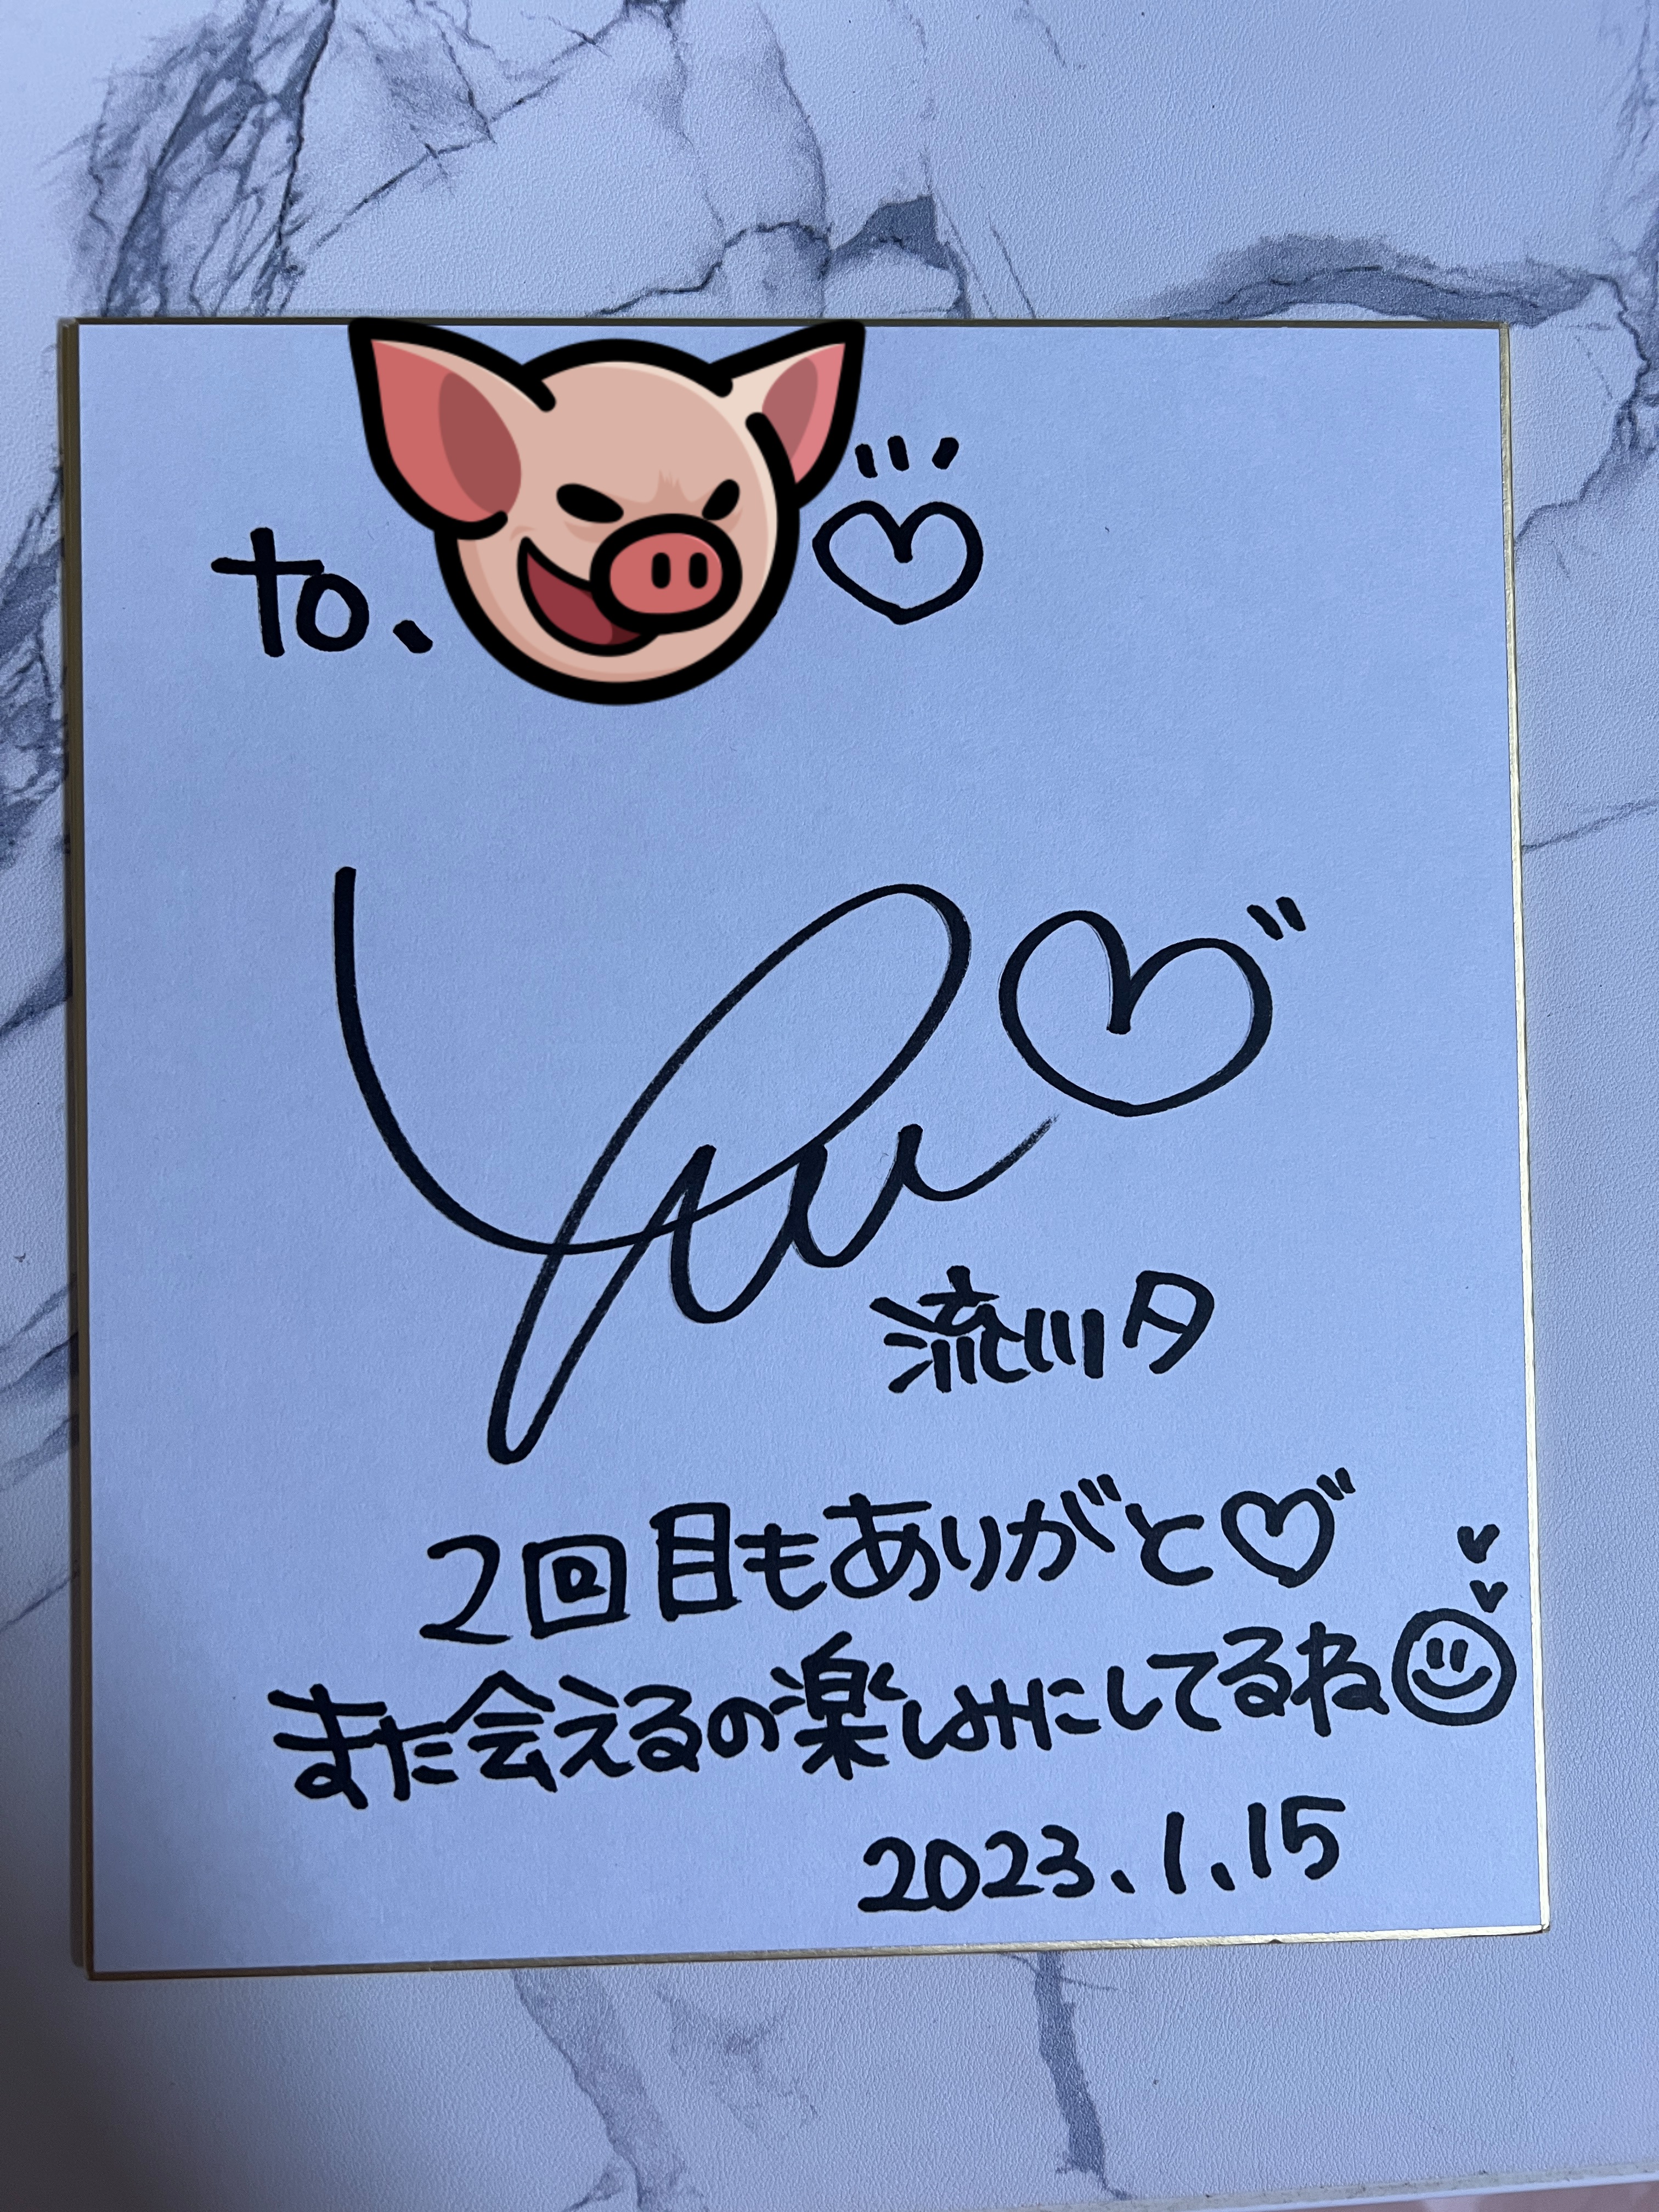 to、
Yuu
流川夕
2回目もありがと
また会えるの楽しみにしてるね
2023.1.15